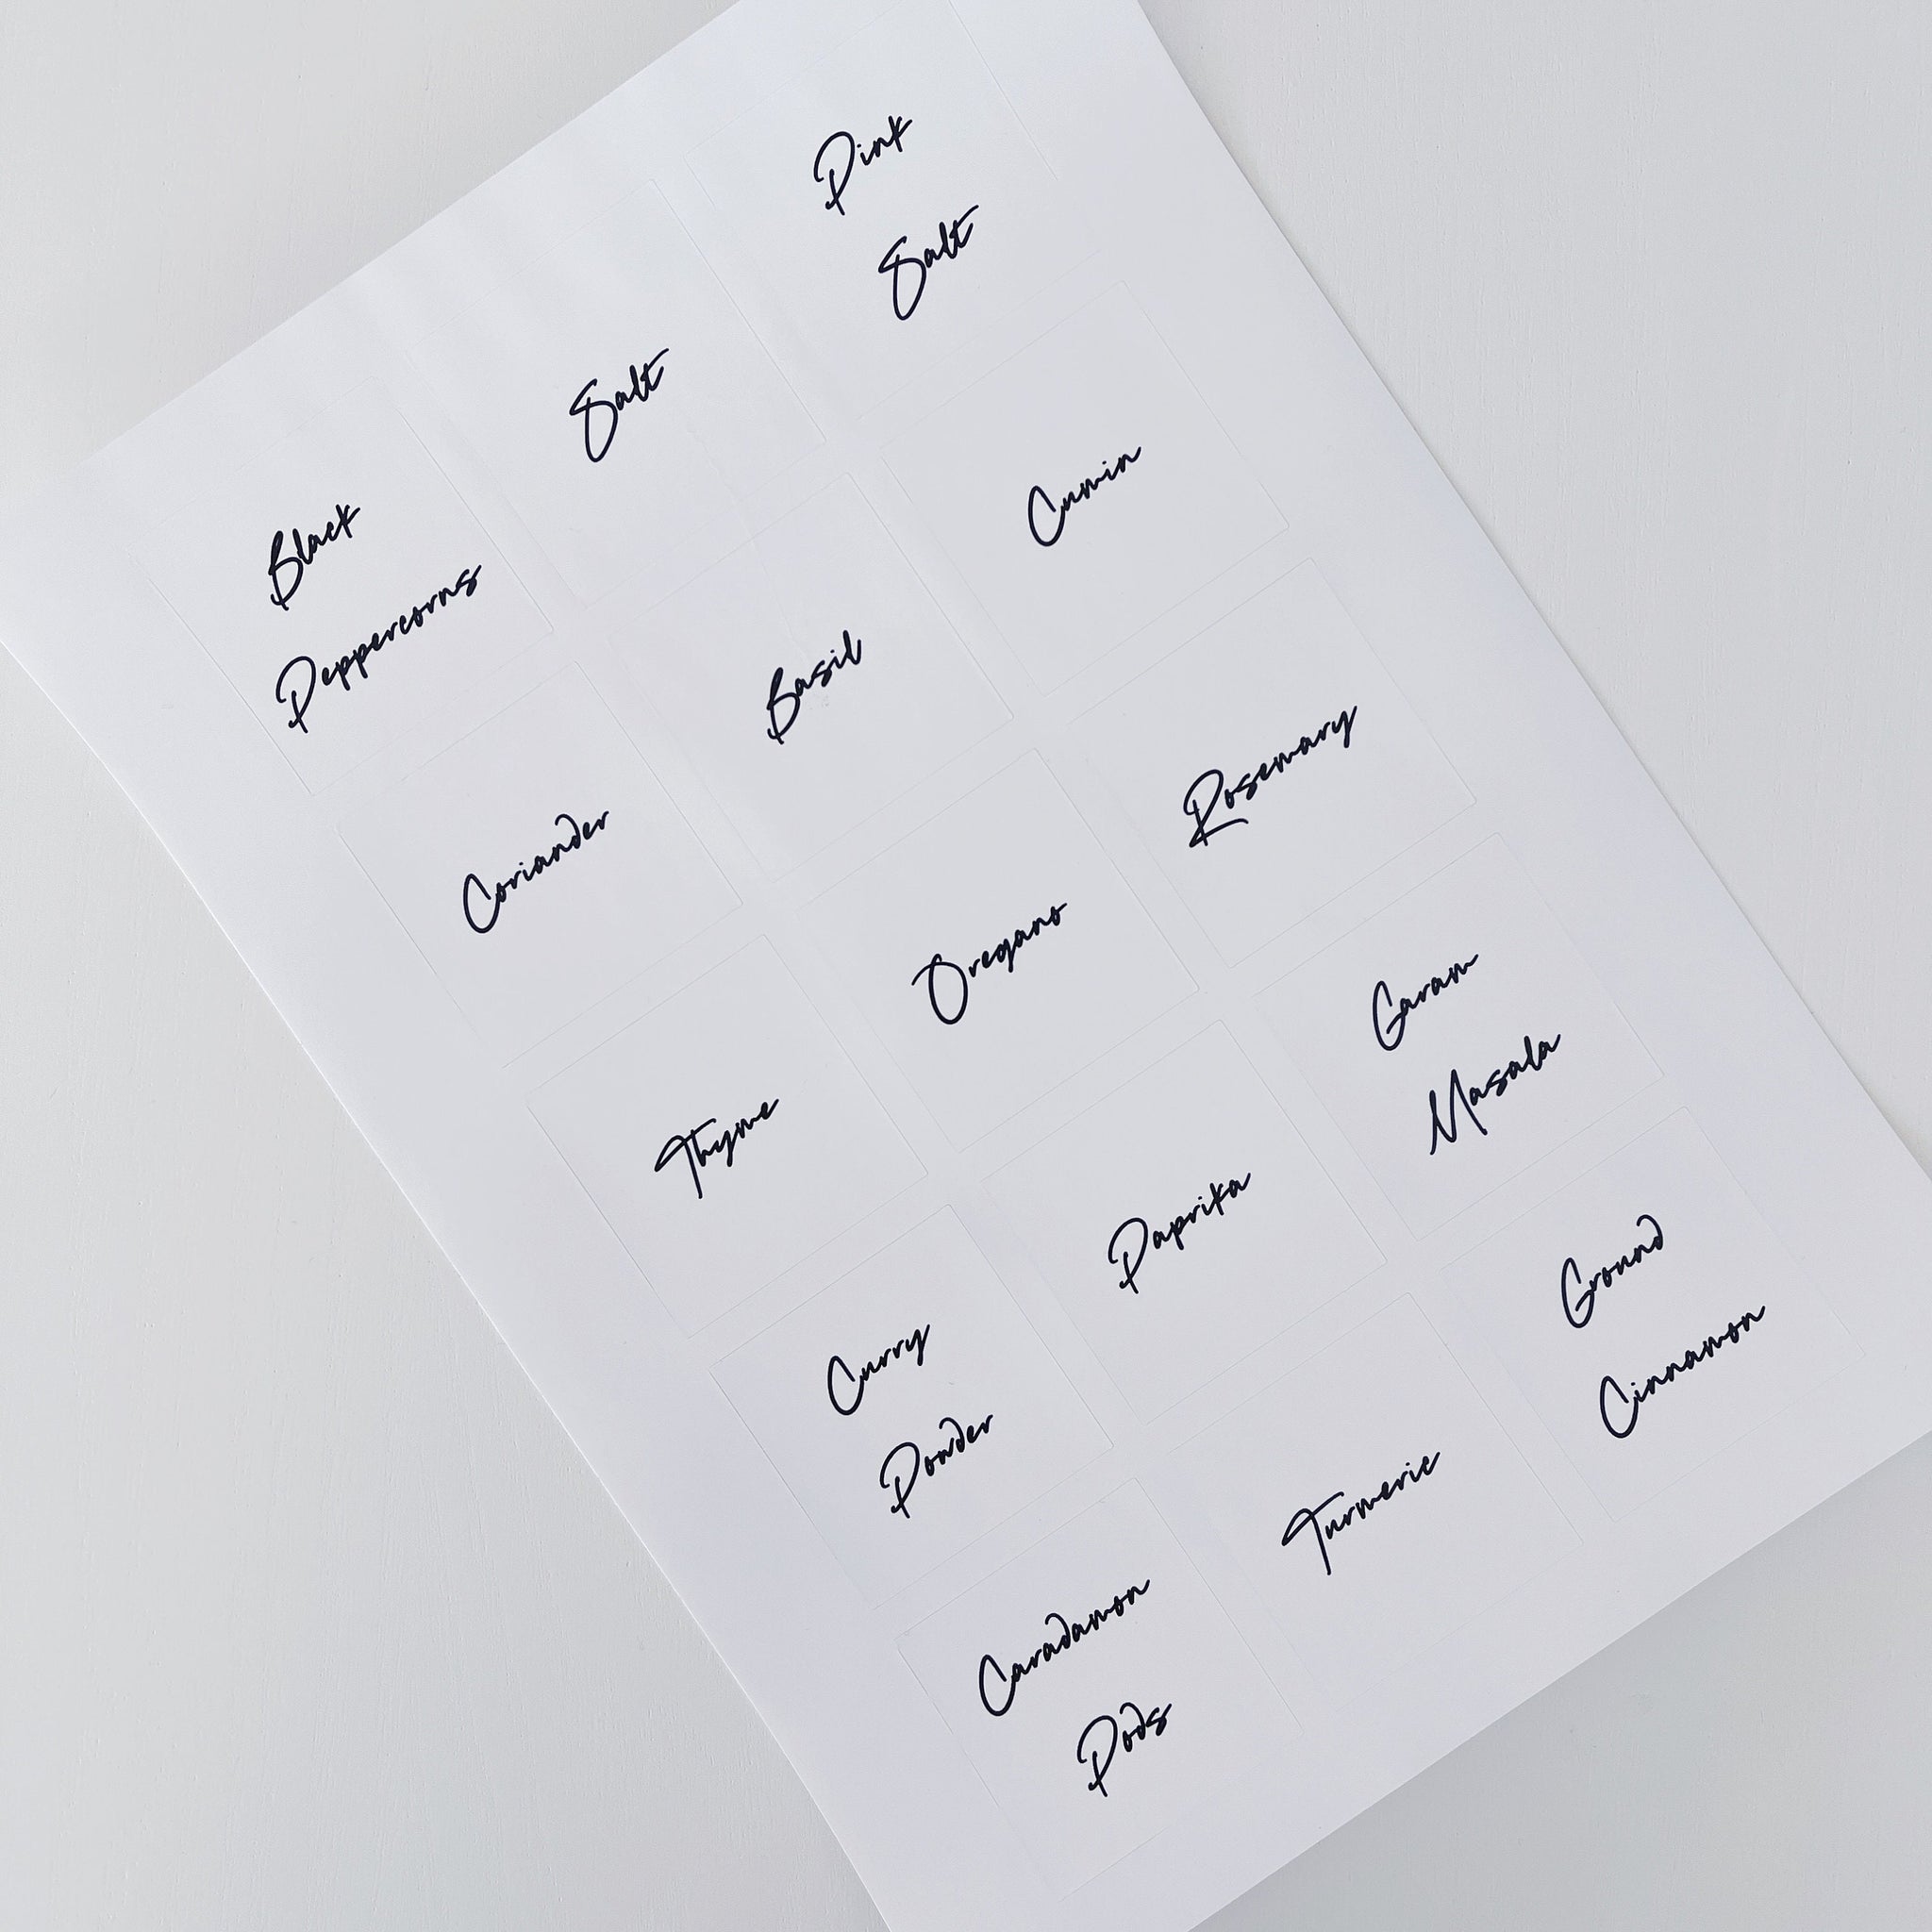 Black
Peppercorns
Salt
Pink
Salt
Coriander
Basil
Cumin
Thyme
Oregano
Rosemary
Curry
Powder
Paprika
Garam
Masala
Caradamon
Pods
Turmeric
Ground
Cinnamon